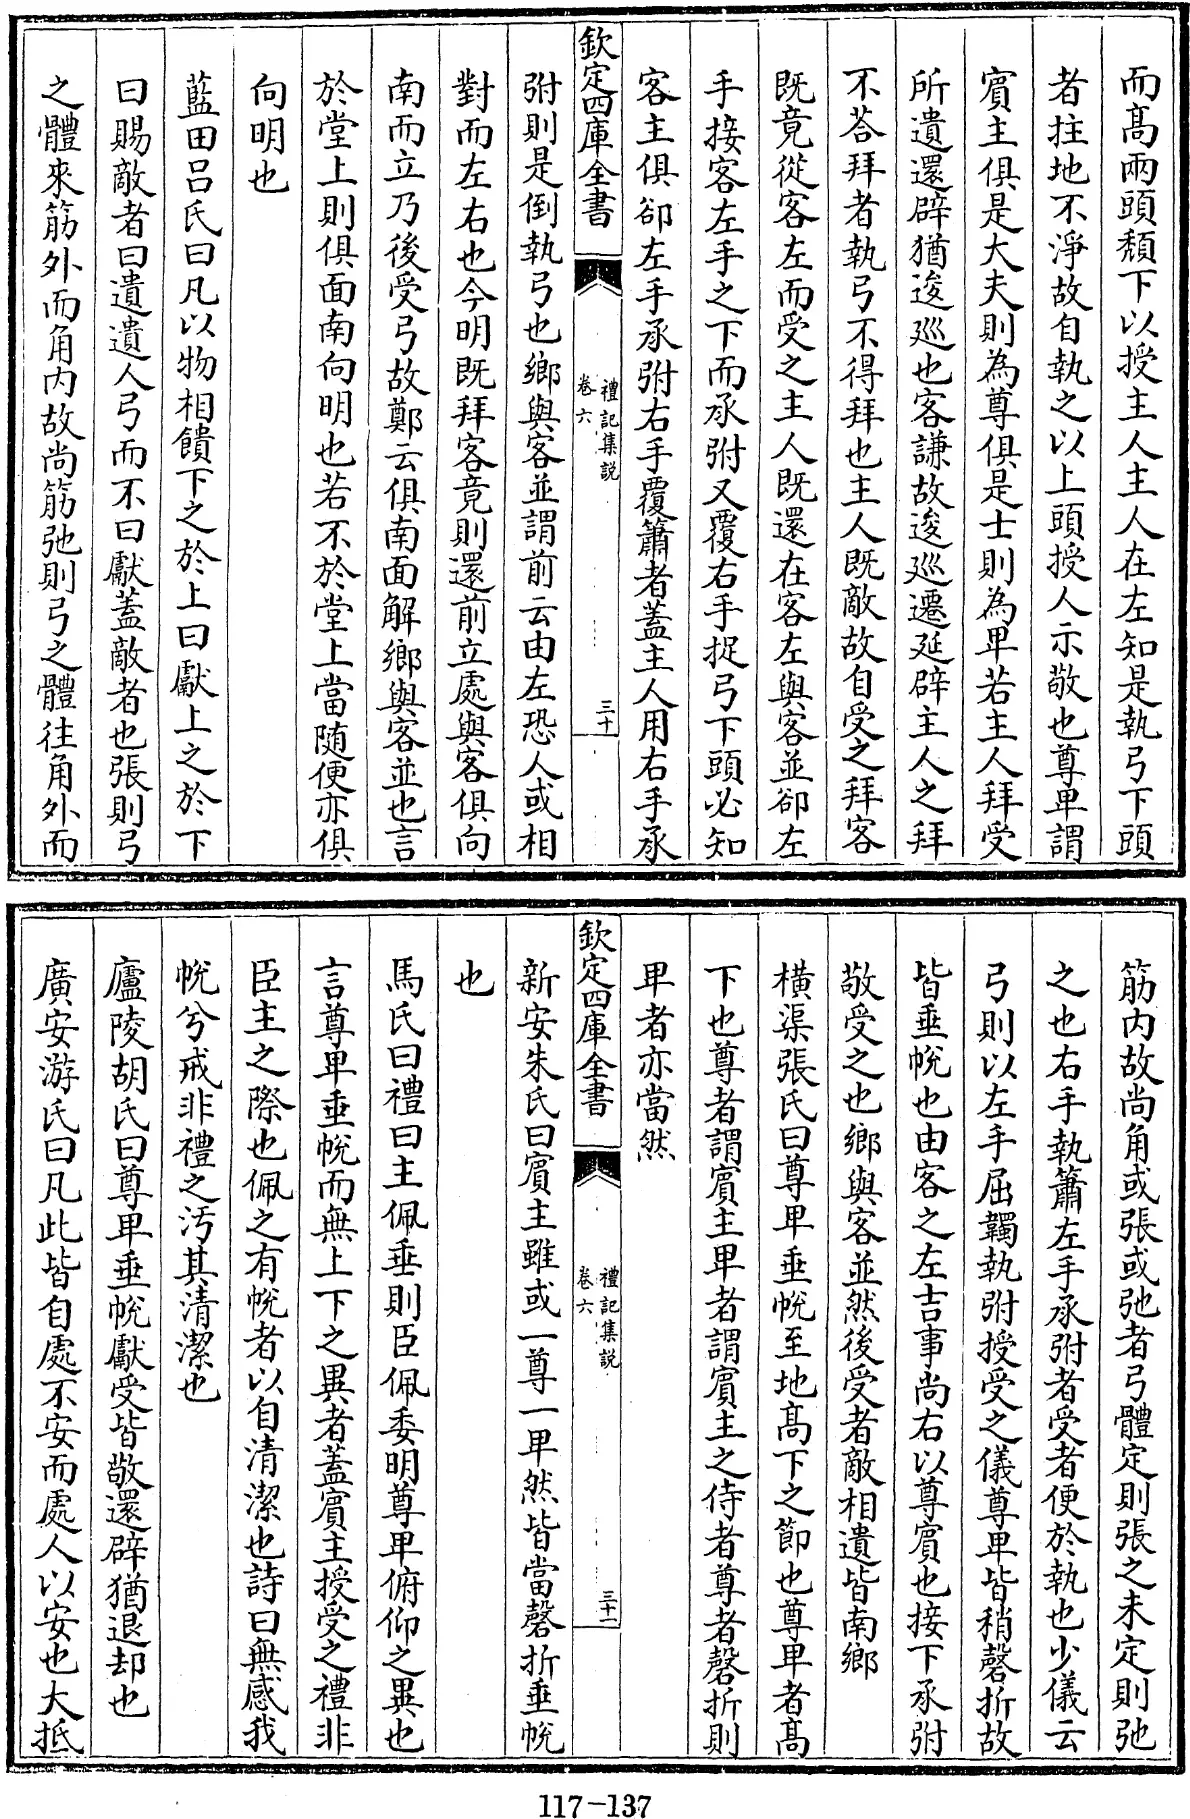 而髙兩頭頽下以授主人主人在左知是執弓下頭
者拄地不淨故自執之以上頭授人示敬也尊卑謂
賔主俱是大夫則為尊俱是士則為卑若主人拜受
所遺還辟猶逡巡也客謙故逡巡遷延辟主人之拜
不荅拜者執弓不得拜也主人既敵故自受之拜客
既竟從客左而受之主人既還在客左與客並郤左
手接客左手之下而承弣又覆右手捉弓下頭必知
客主俱郤左手承弣右手覆簫者葢主人用右手承
欽定四庫全書
禮記集説
卷六
三十
弣則是倒執弓也鄉與客並謂前云由左恐人或相
對而左右也今明既拜客竟則還前立處與客俱向
南而立乃後受弓故鄭云俱南面解鄉與客並也言
於堂上則俱面南向明也若不於堂上當随便亦俱
向明也
藍田吕氏曰凡以物相饋下之於上曰獻上之於下
曰賜敵者曰遺遺人弓而不曰獻葢敵者也張則弓
之體來筋外而角内故尚筋弛則弓之體往角外而
筋内故尚角或張或弛者弓體定則張之未定則弛
之也右手執簫左手承弣者受者便於執也少儀云
弓則以左手屈韣執弣授受之儀尊卑皆稍磬折故
皆垂帨也由客之左吉事尚右以尊賔也接下承弣
敬受之也鄉與客並然後受者敵相遺皆南鄉
横渠張氏曰尊卑垂帨至地髙下之節也尊卑者髙
下也尊者謂賔主卑者謂賔主之侍者尊者磬折則
卑者亦當然
欽定四庫全書
禮記集説
卷六
三十一
新安朱氏曰賔主雖或一尊一卑然皆當磬折垂帨
也
馬氏曰禮曰主佩垂則臣佩委明尊卑俯仰之異也
言尊卑垂帨而無上下之異者葢賔主授受之禮非
臣主之際也佩之有帨者以自清潔也詩曰無感我
帨兮戒非禮之汚其清潔也
廬陵胡氏曰尊卑垂帨獻受皆敬還辟猶退却也
廣安游氏曰凡此皆自處不安而處人以安也大抵
117-137